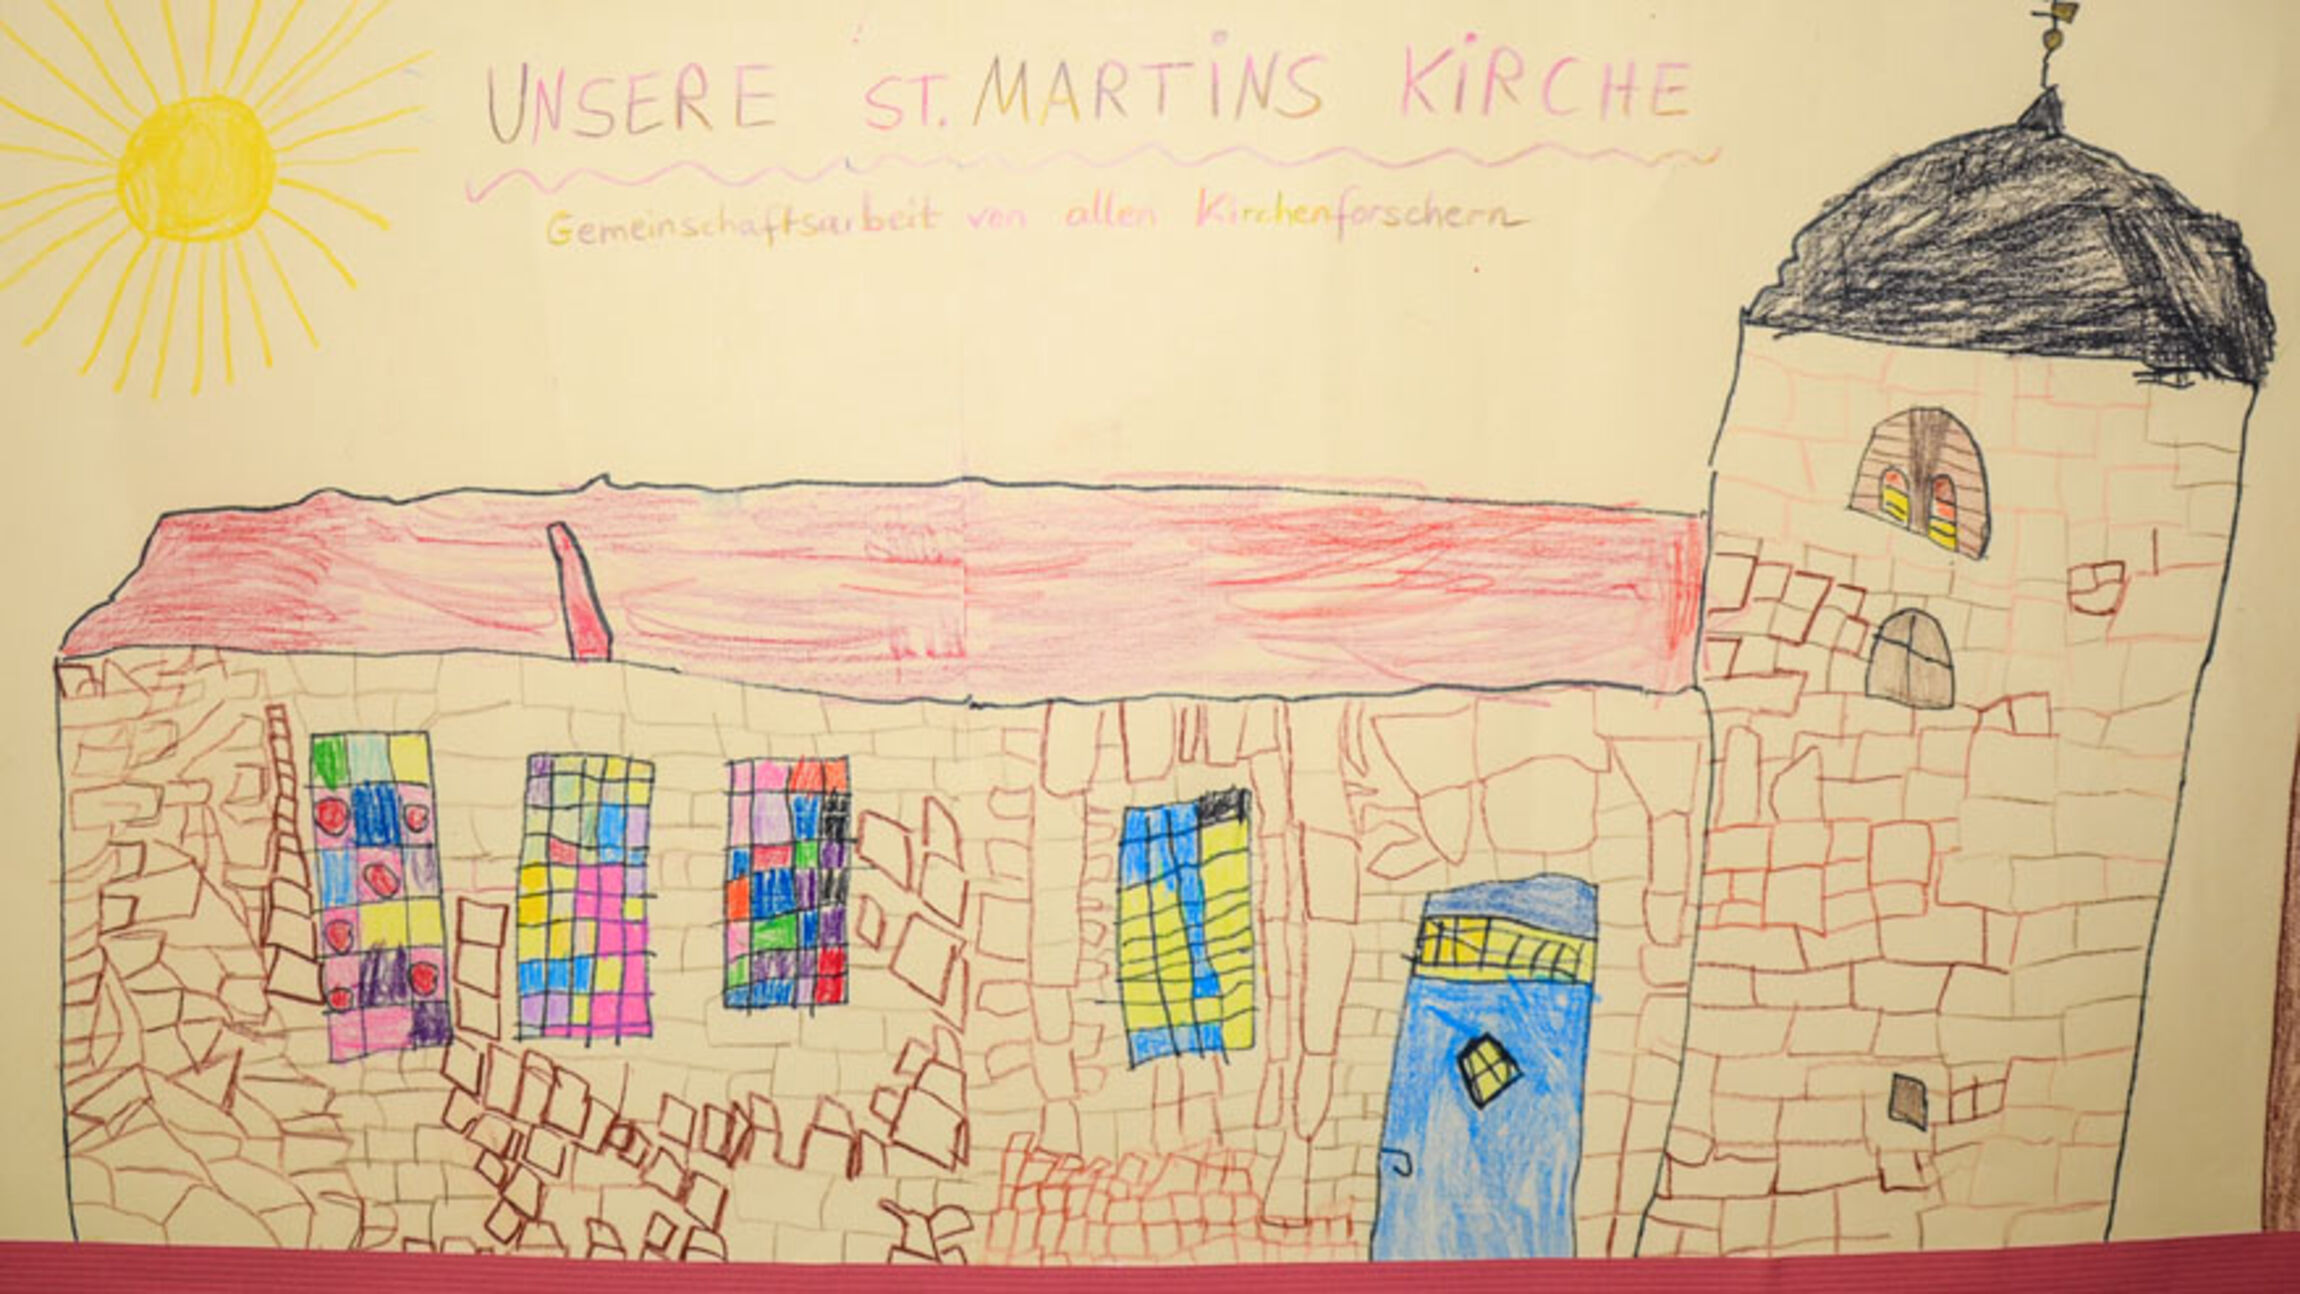 UNSERE ST. MARTINS KIRCHE
Gemeinschaftsarbeit von allen Kirchenforschern